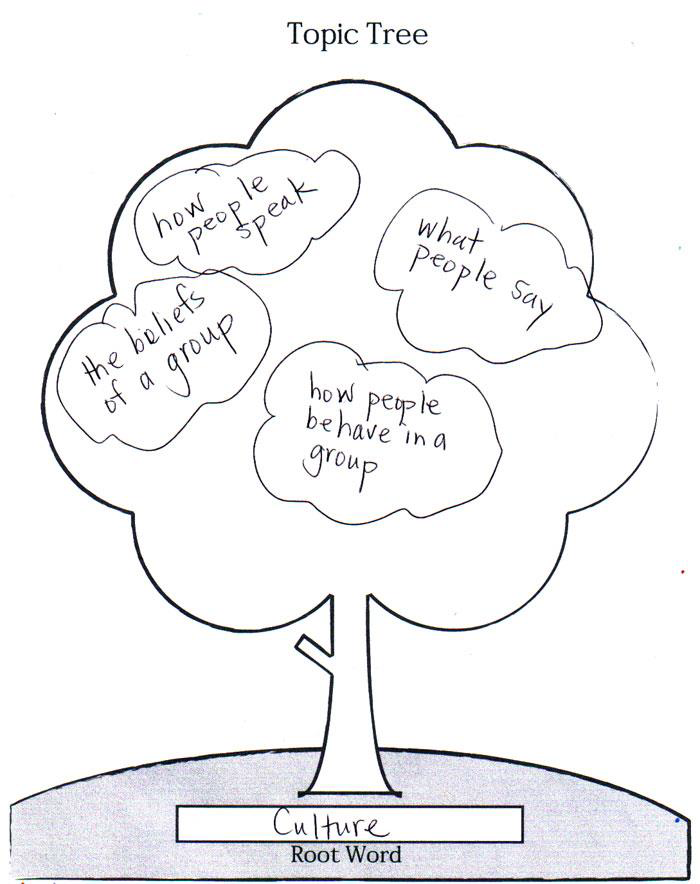 Topic Tree
how
people
speak
what
people say
the beliefs
of a group
how people
behave in a
group
Culture
Root Word